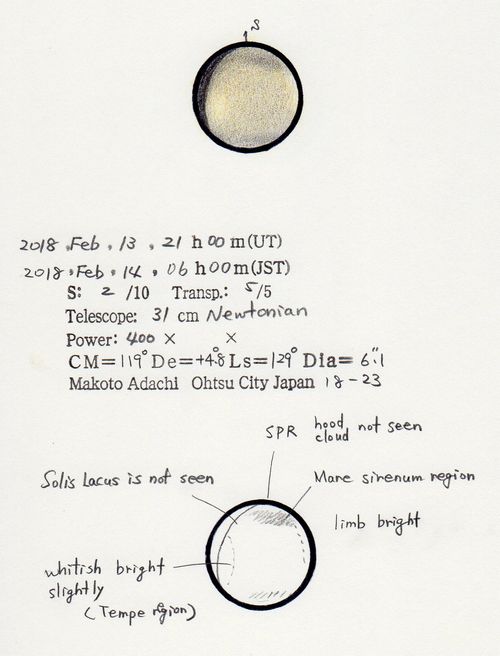 S
2018. Feb. 13. 21 h 00 m (UT)
2018. Feb. 14. 06 h 00 m (JST)
S: 2 /10 Transp.: 5/5
Telescope: 31 cm Newtonian
Power: 400 × ×
CM=119° De=+4.8° Ls=129° Dia= 6".1
Makoto Adachi Ohtsu City Japan 18-23
SPR hood cloud not seen
Solis Lacus is not seen
Mare sirenum region
limb bright
whitish bright
slightly
(Tempe region)